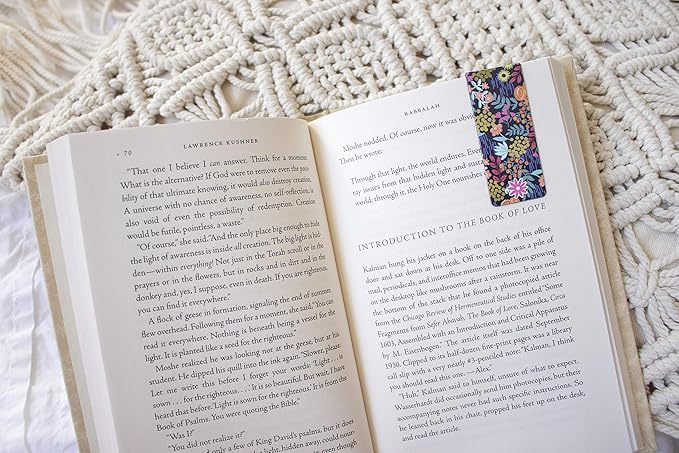 • 70
LAWRENCE KUSHNER
"That one I believe I can answer. Think for a moment.
What is the alternative? If God were to remove even the possi-
bility of that ultimate knowing, it would also destroy creation.
A universe with no chance of awareness, no self-reflection, is
also void of even the possibility of redemption. Creation
would be futile, pointless, a waste."
"Of course," she said. "And the only place big enough to hide
the light of awareness is inside all creation. The big light is hid-
den—within everything! Not just in the Torah scroll or in the
prayers or in the flowers, but in rocks and in dirt and in the
donkey and, yes, I suppose, even in death. If you are righteous,
you can find it everywhere."
A flock of geese in formation, signaling the end of summer,
flew overhead. Following them for a moment, she said, "You can
read it everywhere. Nothing is beneath being a vessel for the
light. It is planted like a seed for the righteous."
Moshe realized he was looking not at the geese, but at his
student. He dipped his quill into the ink again. "Slower, please.
Let me write this before I forget your words: 'Light . . . is
sown . . . for the righteous . . .' It is so beautiful. But wait, I had
heard that before. 'Light is sown for the righteous.' It is from the
Book of Psalms. You were quoting the Bible."
"Was I?"
"You did not realize it?"
only a few of King David's psalms, but it does
the light, hidden away, could nour-
KABBALAH
Moshe nodded. Of course, now it was obvi
Then he wrote:
Through that light, the world endures. Ever
ray issues from that hidden light and sust
world; through it, the Holy One nourishes
INTRODUCTION TO THE BOOK OF LOVE
Kalman hung his jacket on a hook on the back of his office
door and sat down at his desk. Off to one side was a pile of
mail, periodicals, and interoffice memos that had been growing
on the desktop like mushrooms after a rainstorm. It was near
the bottom of the stack that he found a photocopied article
from the Chicago Review of Hermeneutical Studies entitled "Some
Fragments from Sefer Ahavah, The Book of Love, Salonika, Circa
1603, Assembled with an Introduction and Critical Apparatus
by M. Eisenbogen." The article itself was dated September
1930. Clipped to its half-dozen fine-print pages was a library
call slip with a very neatly #3-penciled note: "Kalman, I think
you should read this one.—Alex."
"Huh," Kalman said to himself, unsure of what to expect.
Wasserhardt did occasionally send him photocopies, but their
accompanying notes never had such specific instructions. So
he leaned back in his chair, propped his feet up on the desk,
and read the article.